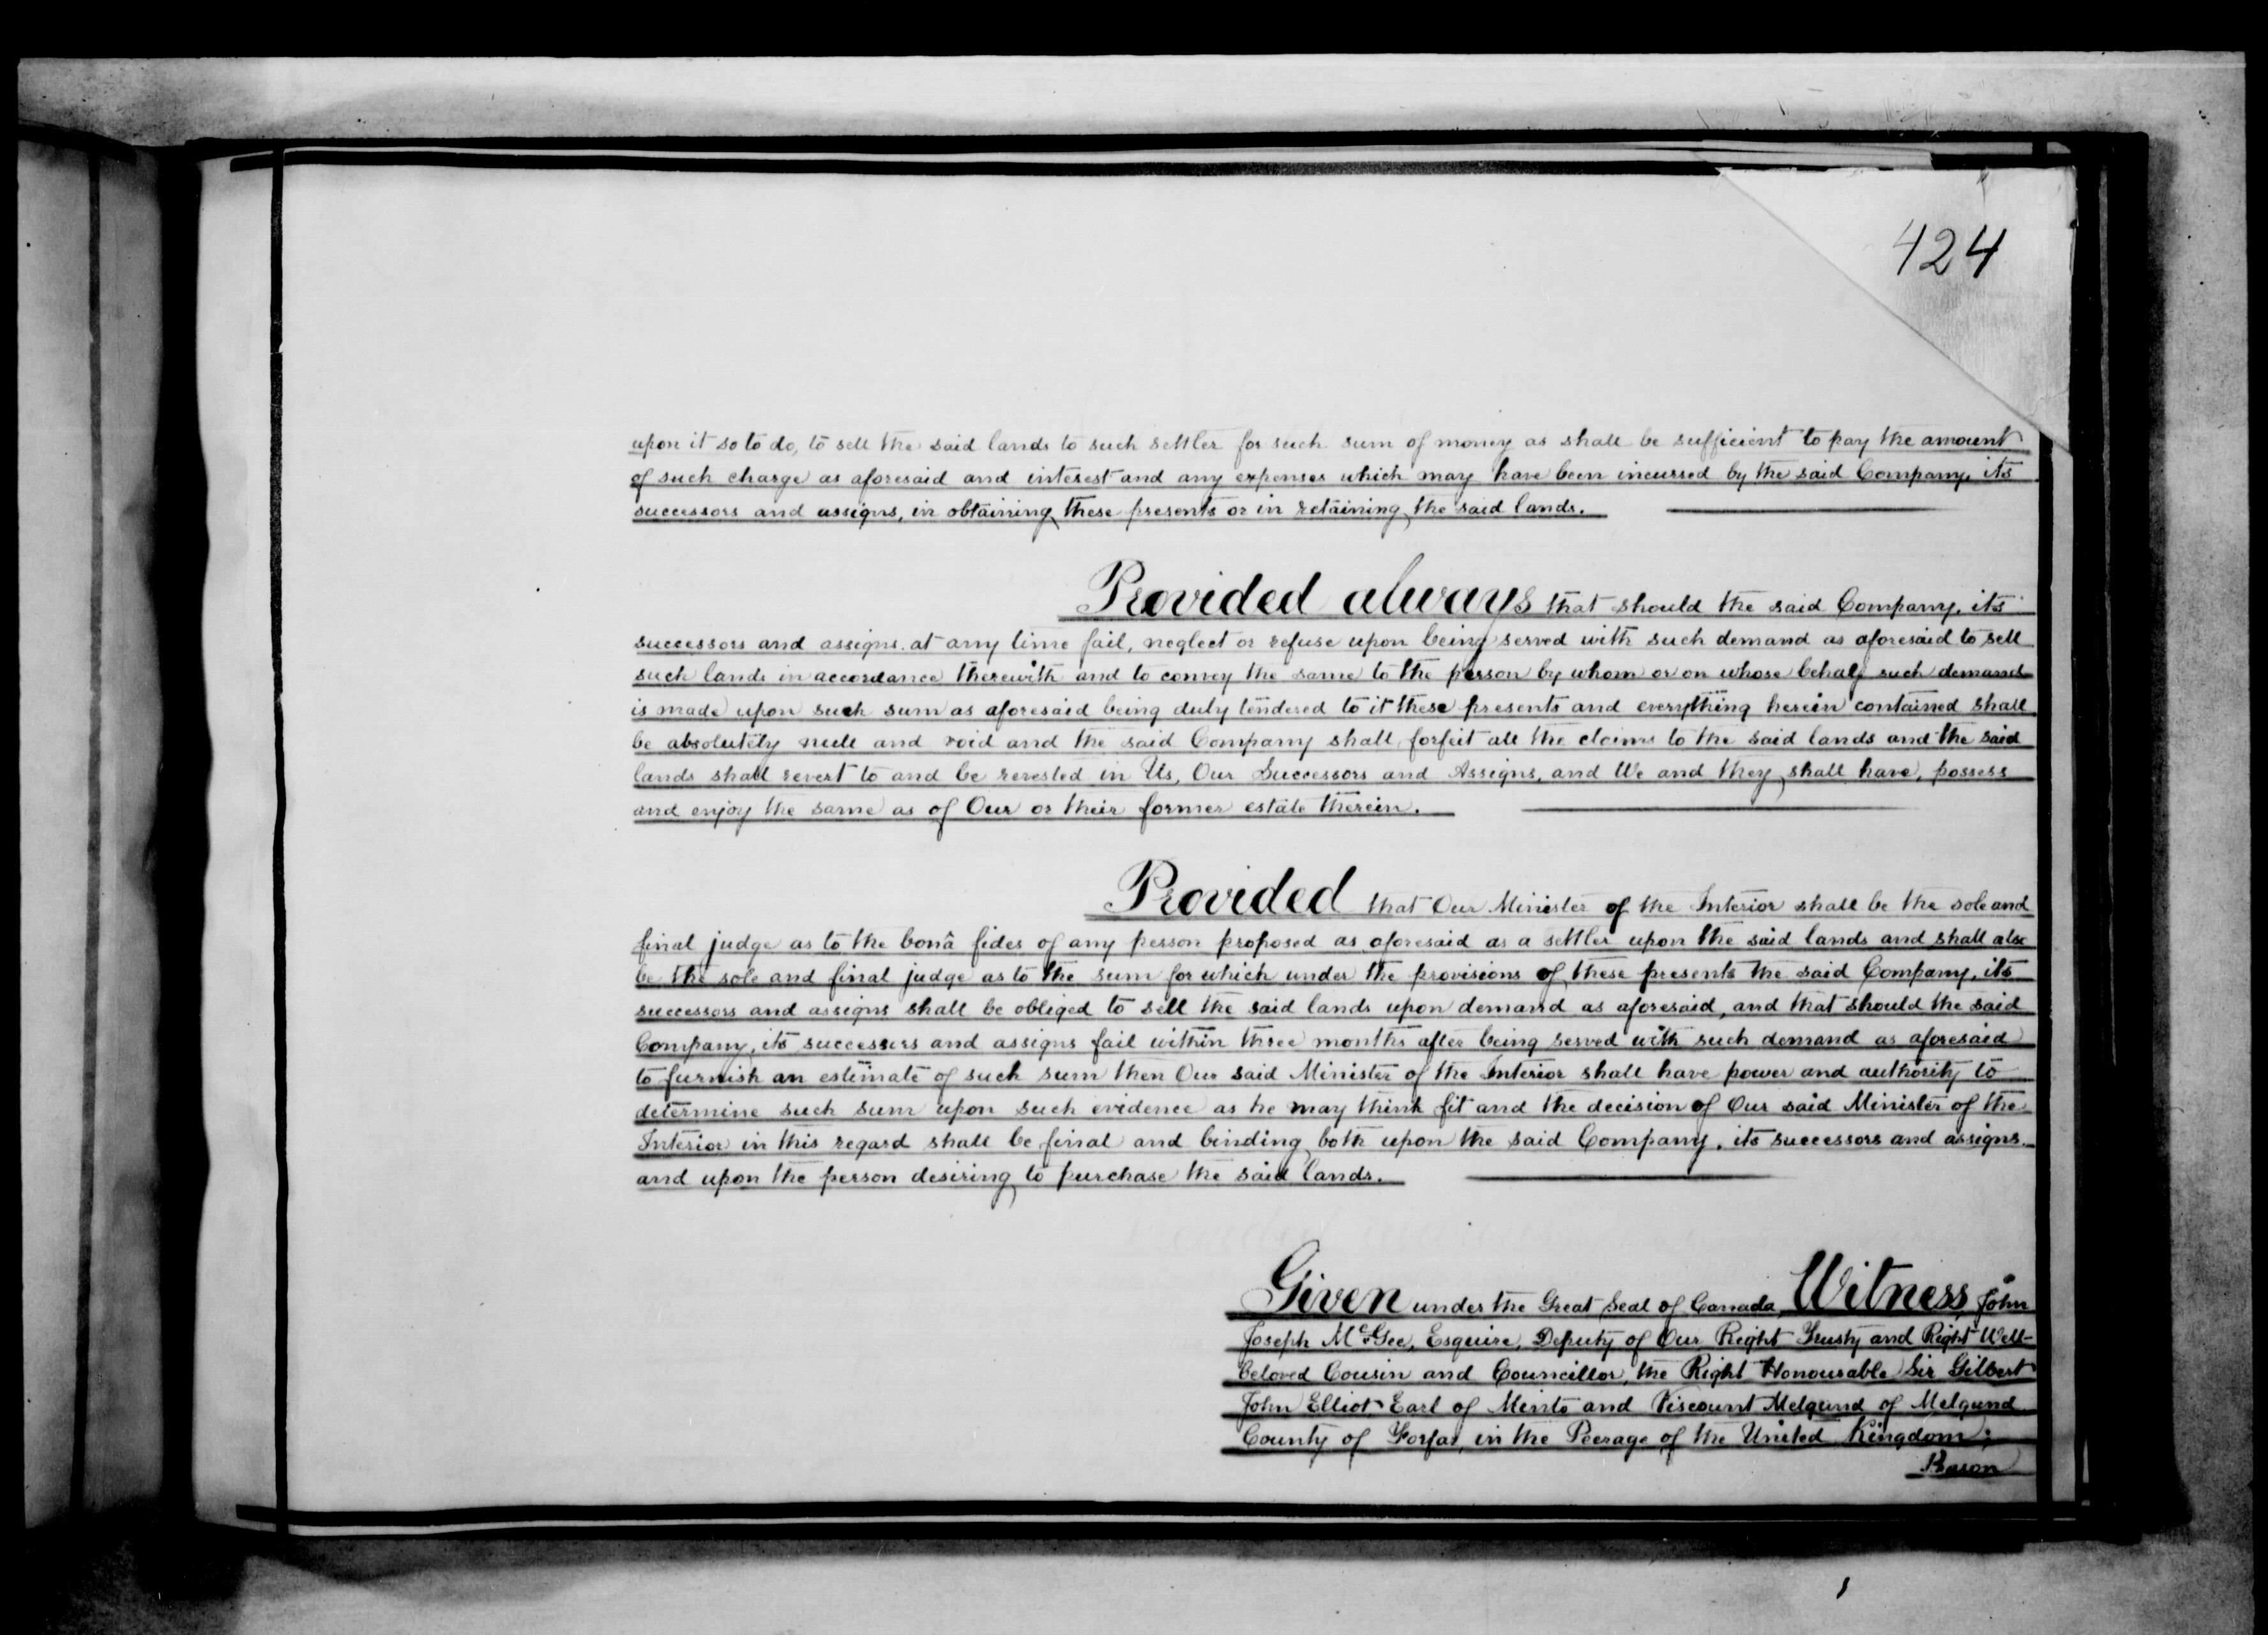 424
upon it so to do, to sell the said lands to such settler for such sum of money as shall be sufficient to pay the amount
of such charge as aforesaid and interest and any expenses which may have been incurred by the said Company, its
successors and assigns, in obtaining these presents or in retaining the said lands.
Provided always that should the said Company, its
successors and assigns. at any time fail, neglect or refuse upon being served with such demand as aforesaid to sell
such lands in accordance therewith and to convey the same to the person by whom or on whose behalf such demand
is made upon such sum as aforesaid being duly tendered to it these presents and everything herein contained shall
be absolutely null and void and the said Company shall forfeit all the claims to the said lands and the said
lands shall revert to and be revested in Us, Our Successors and Assigns, and We and they shall have, possess
and enjoy the same as of Our or their former estate therein.
Provided that Our Minister of the Interior shall be the sole and
final judge as to the bonâ fides of any person proposed as aforesaid as a settler upon the said lands and shall also
be the sole and final judge as to the sum for which under the provisions of these presents the said Company, its
successors and assigns shall be obliged to sell the said lands upon demand as aforesaid, and that should the said
Company, its successors and assigns fail within three months after being served with such demand as aforesaid
to furnish an estimate of such sum then Our said Minister of the Interior shall have power and authority to
determine such sum upon such evidence as he may think fit and the decision of Our said Minister of the
Interior in this regard shall be final and binding both upon the said Company, its successors and assigns
and upon the person desiring to purchase the said lands.
Given under the Great Seal of Canada, Witness, John
Joseph McGee, Esquire, Deputy of Our Right Trusty and Right Well-
beloved Cousin and Councillor, the Right Honourable Sir Gilbert
John Elliot Earl of Minto and Viscount Melgund of Melgund
County of Forfar, in the Peerage of the United Kingdom;
Baron